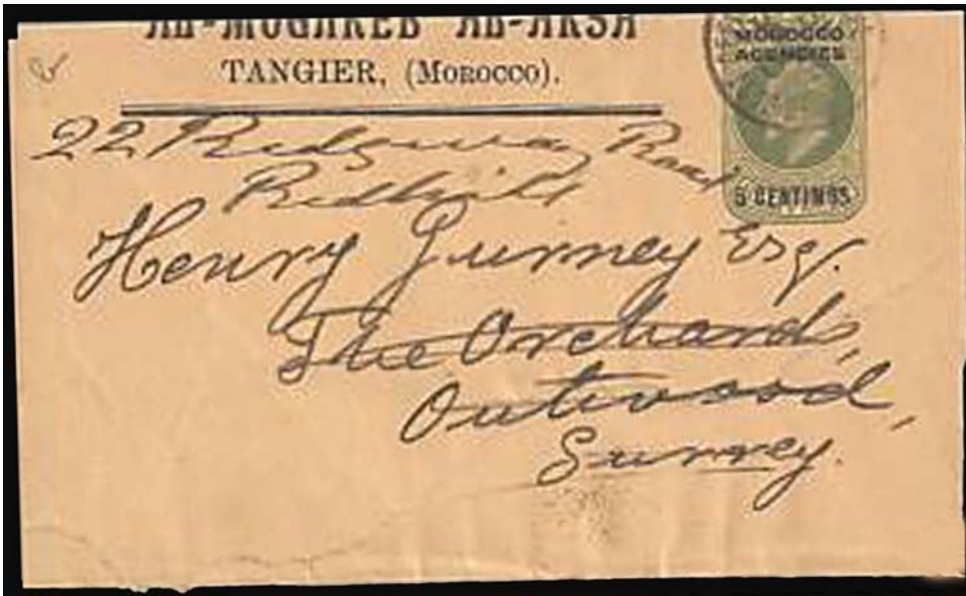 AL-MOGHREB AL-AKSA
TANGIER, (MOROCCO).
MOROCCO
AGENCIES
5 CENTIMOS
22 Ridgeway Road
Redhill
Henry Gurney Esq.
The Orchard,
Outwood,
Surrey.